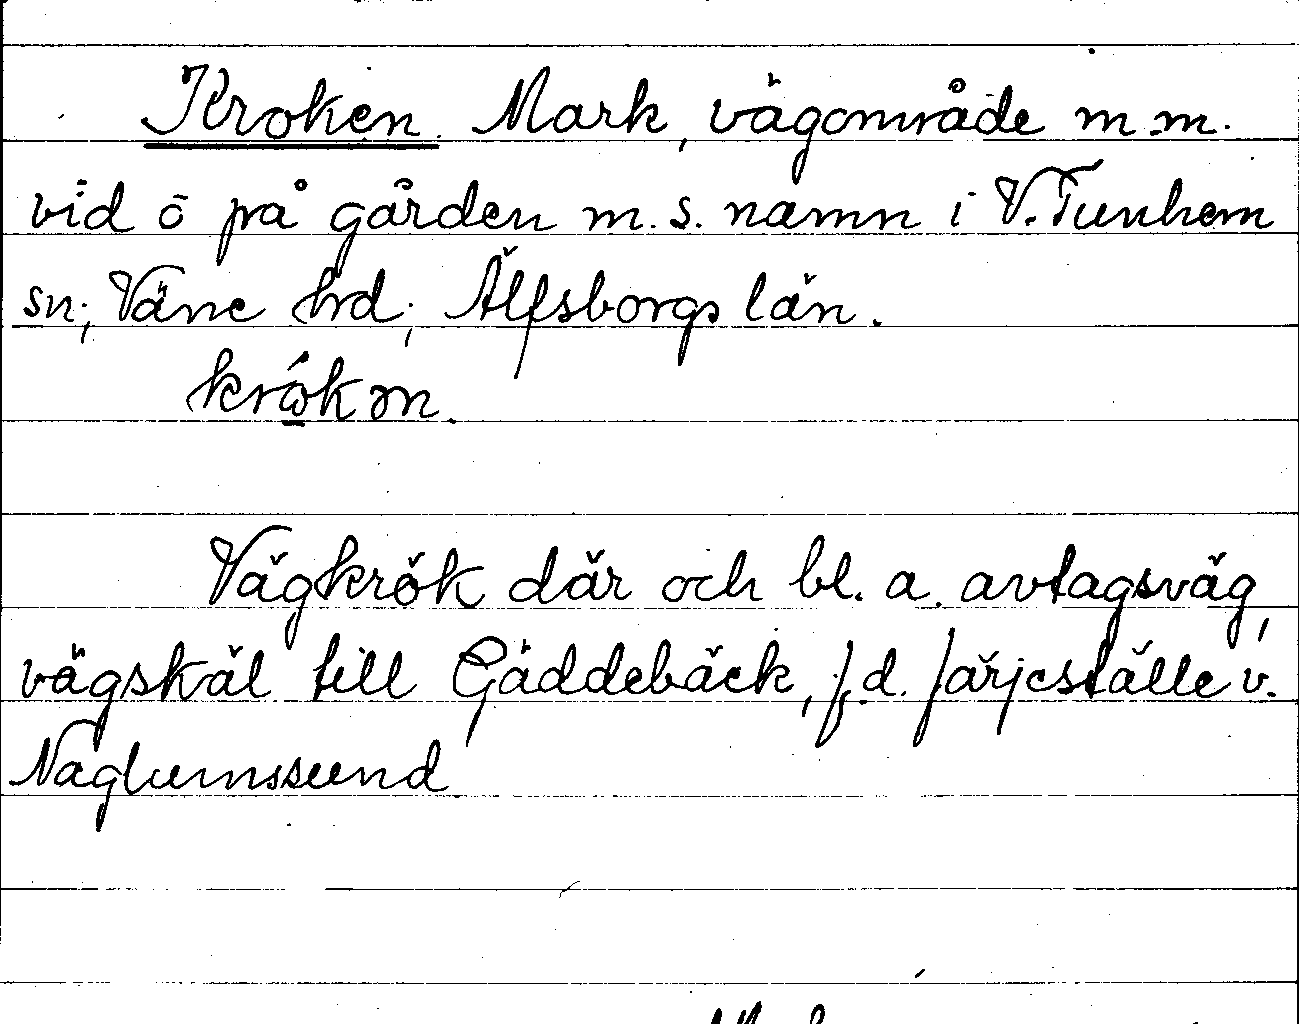 Kroken. Mark, vägområde m.m.
vid o på gården m.s. namn i V. Tunhem
sn; Väne hrd; Älfsborgs län.
Vägkrök där och bl. a. avtagsväg,
vägskäl till Gäddebäck, f.d. färjeställe v.
Naglumssund